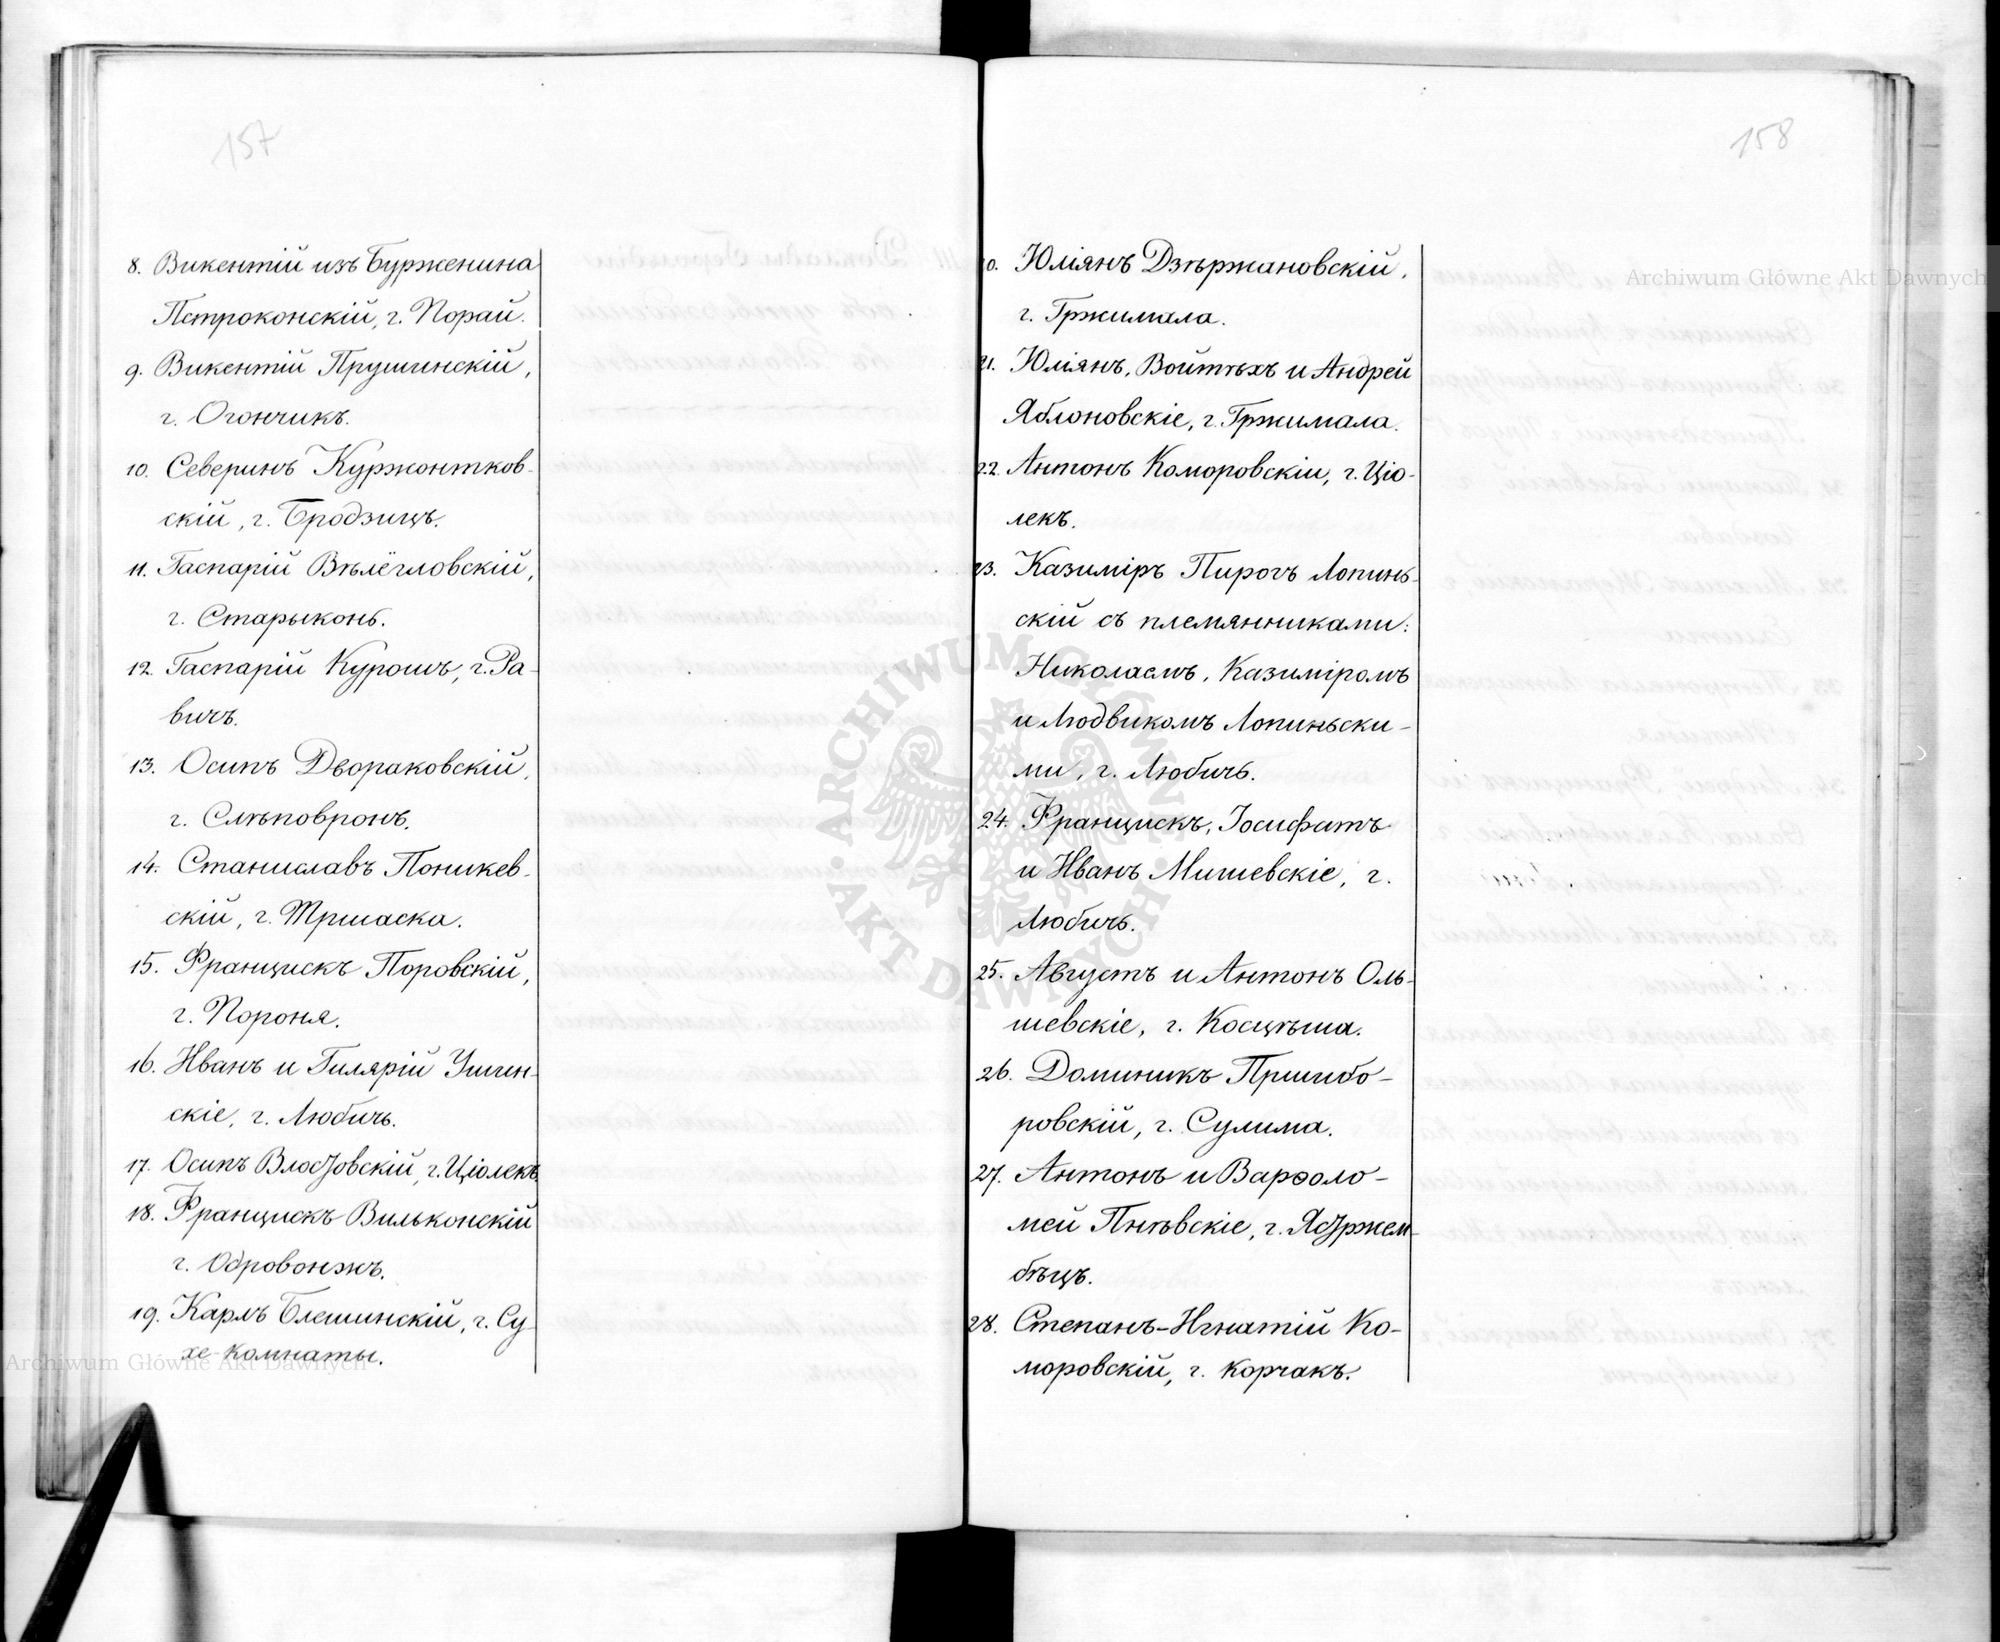 157
8. Викентій изъ Бурженина
Петроконскій, г. Порай.
9. Викентій Прушинскій,
г. Огончикъ.
10. Северинъ Куржонтков-
скій, г. Бродзицъ.
11. Гаспарій Вѣлёгловскій,
г. Старыконь.
12. Гаспарій Курошъ, г. Ра-
вичъ.
13. Осипъ Двораковскій,
г. Слѣповронъ.
14. Станиславъ Поникев-
скій, г. Тршаска.
15. Францискъ Поровскій,
г. Пороня.
16. Иванъ и Гилярій Ушин-
скіе, г. Любичъ.
17. Осипъ Влостовскій, г. Ціолекъ.
18. Францискъ Вильконскій
г. Одровонжъ.
19. Карлъ Блешинскій, г. Су-
хе-комнаты.
158
20. Юліянъ Дзѣржановскій,
г. Гржимала.
21. Юліянъ, Войтѣхъ и Андрей
Яблоновскіе, г. Гржимала.
22. Антонъ Коморовскій, г. Ціо-
лекъ.
23. Казиміръ Пирогъ Лопинь-
скій съ племянниками:
Николаемъ, Казиміромъ
и Людвикомъ Лопиньски-
ми, г. Любичъ.
24. Францискъ, Іосифатъ
и Иванъ Мишевскіе, г.
Любичъ.
25. Августъ и Антонъ Оль-
шевскіе, г. Косцѣша.
26. Доминикъ Пршибо-
ровскій, г. Сулима.
27. Антонъ и Варѳоло-
мей Пнѣвскіе, г. Ястржем-
бѣцъ.
28. Степанъ-Игнатій Ко-
моровскій, г. Корчакъ.
Archiwum Główne Akt Dawnych
Archiwum Główne Akt Dawnych
ARCHIWUM GŁÓWNE AKT DAWNYCH